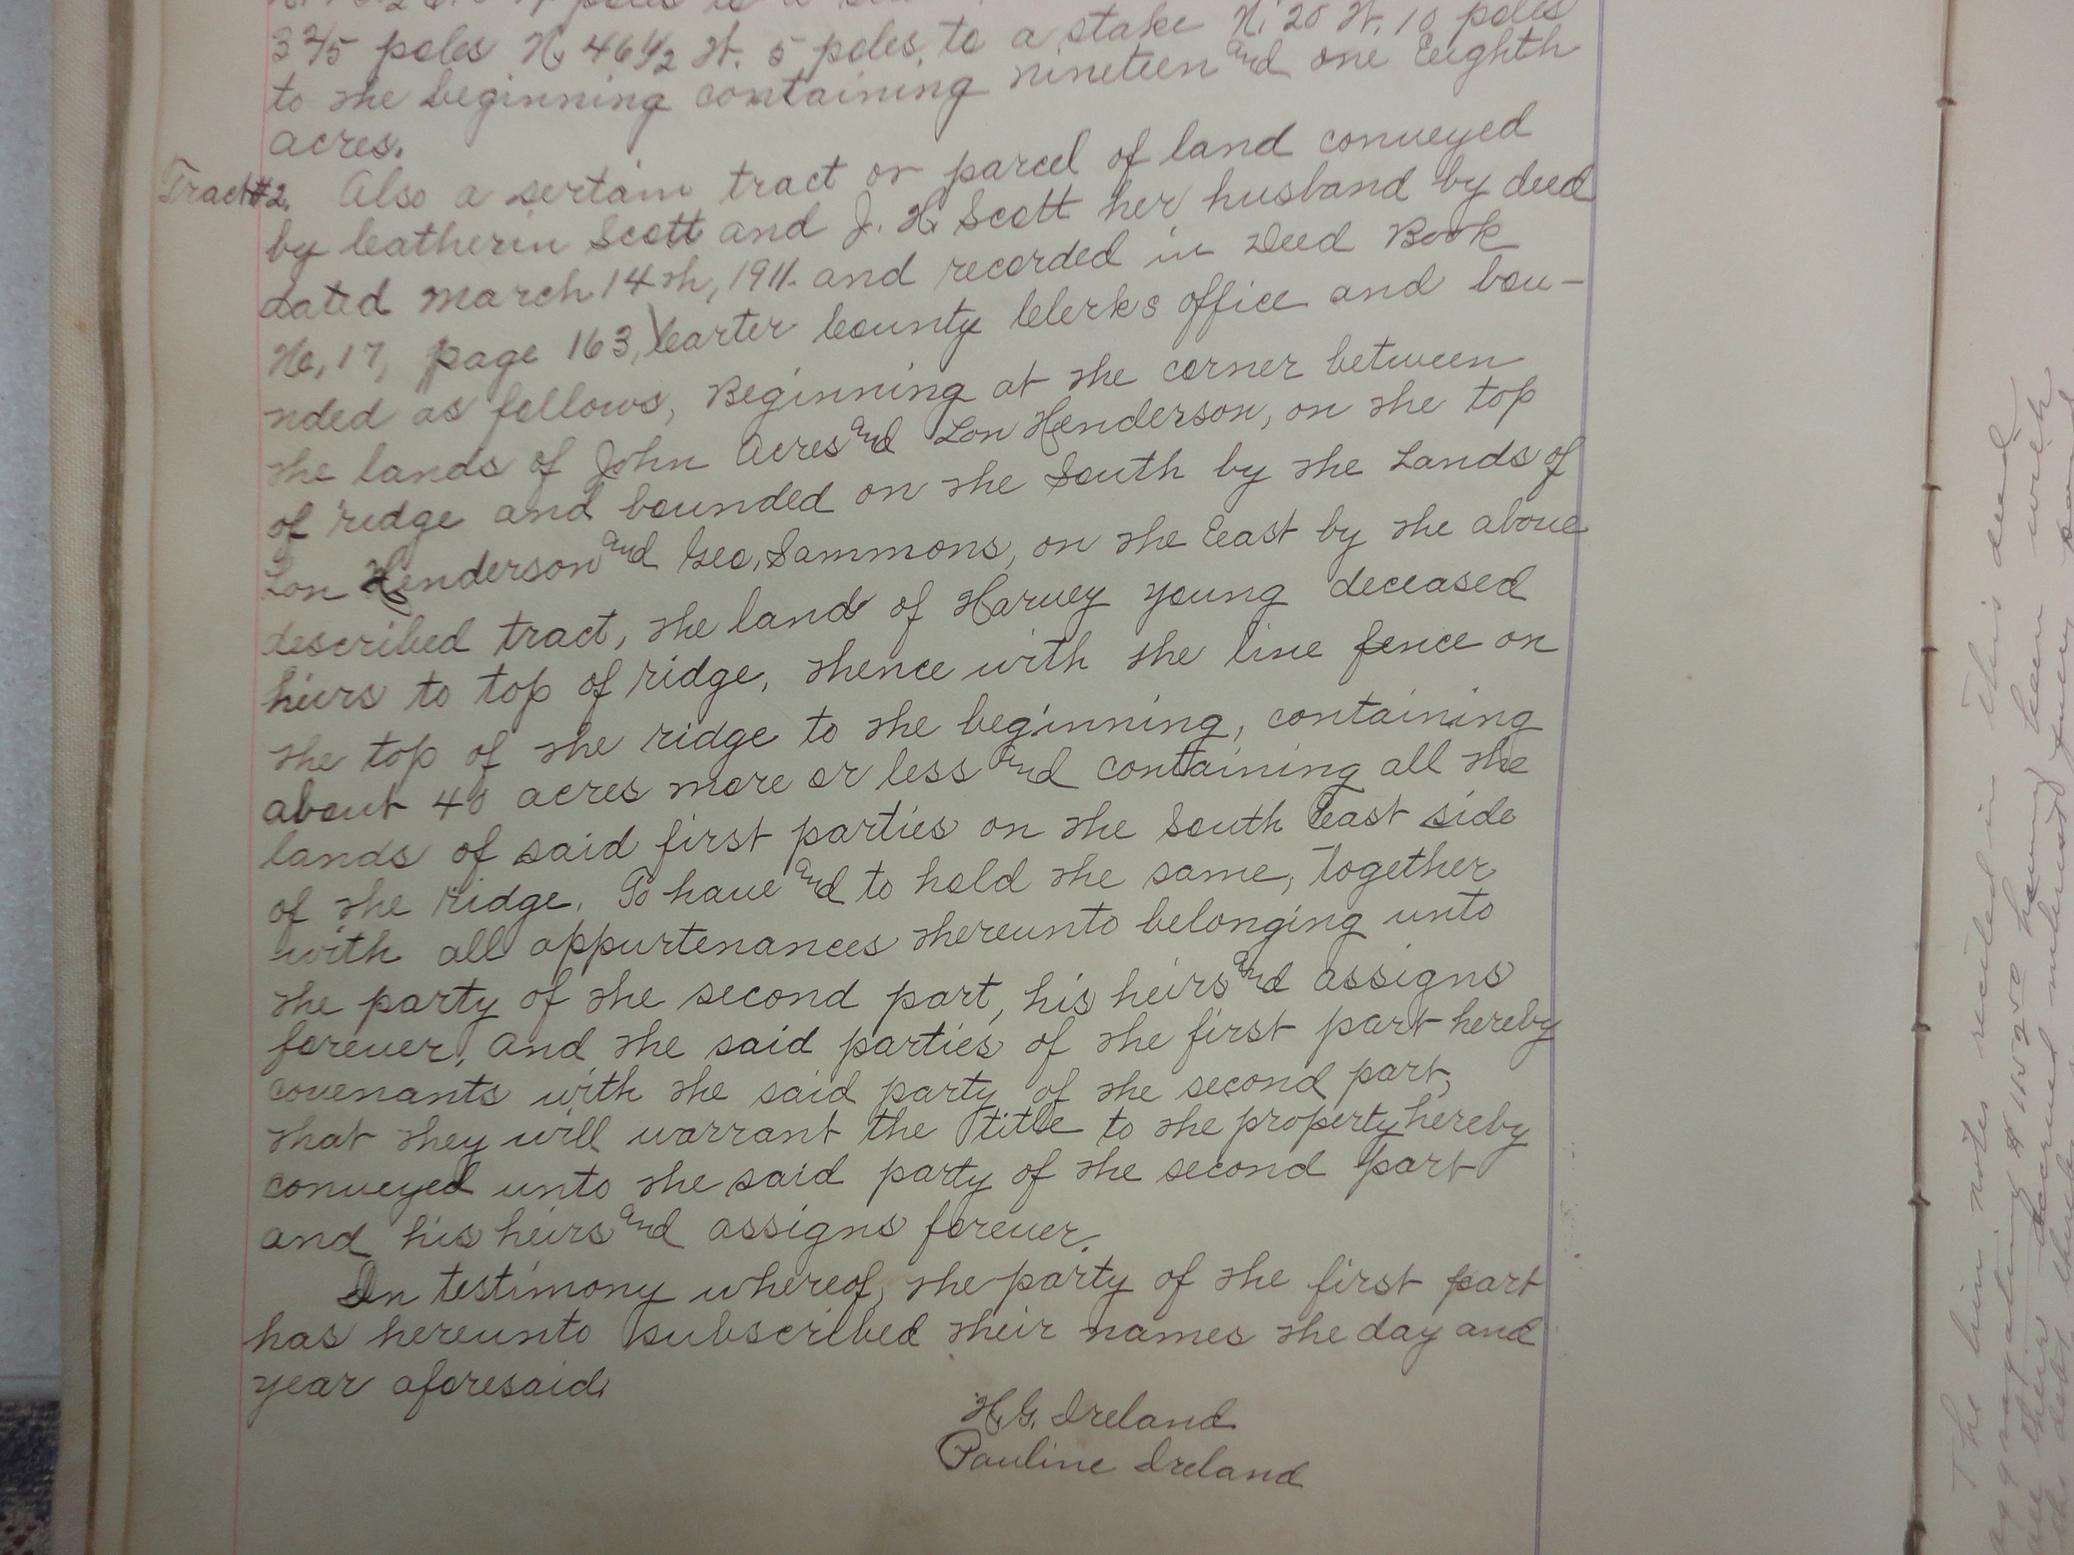 poles to a
3 2/5 poles N. 46 1/2 W. 5 poles, to a stake N. 20 W. 10 poles
to the beginning containing nineteen and one Eighth
acres.
Tract #2. Also a sertain tract or parcel of land conveyed
by Catherin Scott and J. H. Scott her husband by deed
dated March 14th, 1911. and recorded in Deed Book
No, 17, page 163, Carter County Clerks office and bou-
nded as follows, Beginning at the corner between
the lands of John Acres and Lon Henderson, on the top
of ridge and bounded on the South by the Lands of
Lon Henderson and Geo, Sammons, on the East by the above
described tract, the land of Harvey Young deceased
heirs to top of ridge, thence with the line fence on
the top of the ridge to the beginning, containing
about 40 acres more or less and containing all the
lands of said first parties on the South East side
of the ridge. To have and to hold the same, together
with all appurtenances thereunto belonging unto
the party of the second part, his heirs and assigns
forever, and the said parties of the first part hereby
covenants with the said party of the second part,
that they will warrant the title to the property hereby
conveyed unto the said party of the second part
and his heirs and assigns forever.
In testimony whereof, the party of the first part
has hereunto subscribed their names the day and
year aforesaid.
H. G. Ireland
Pauline Ireland
The lien notes recited in this deed
having been with